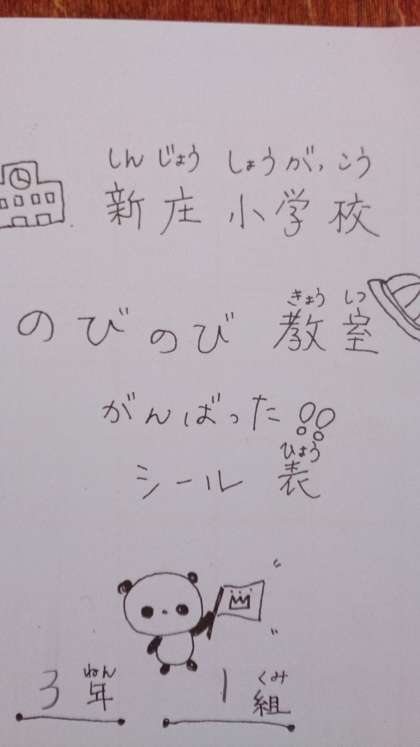 しん じょう しょう がっ こう
新庄小学校
きょう しつ
のびのび教室
がんばった!!
ひょう
シール 表
ねん くみ
3年 1組